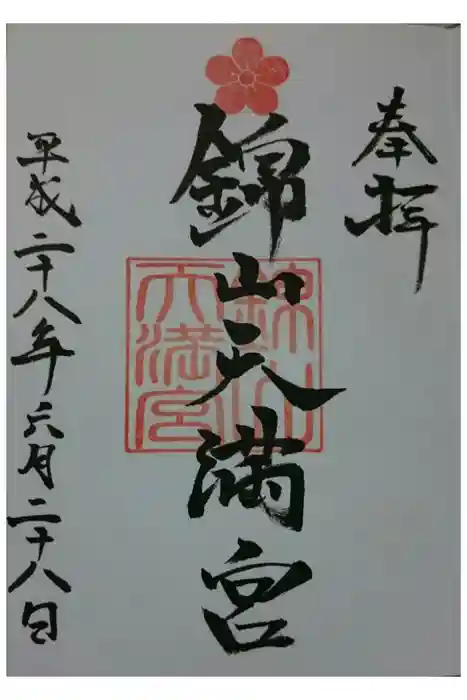 奉拝
錦山天満宮
錦山
天満宮
平成二十八年六月二十八日